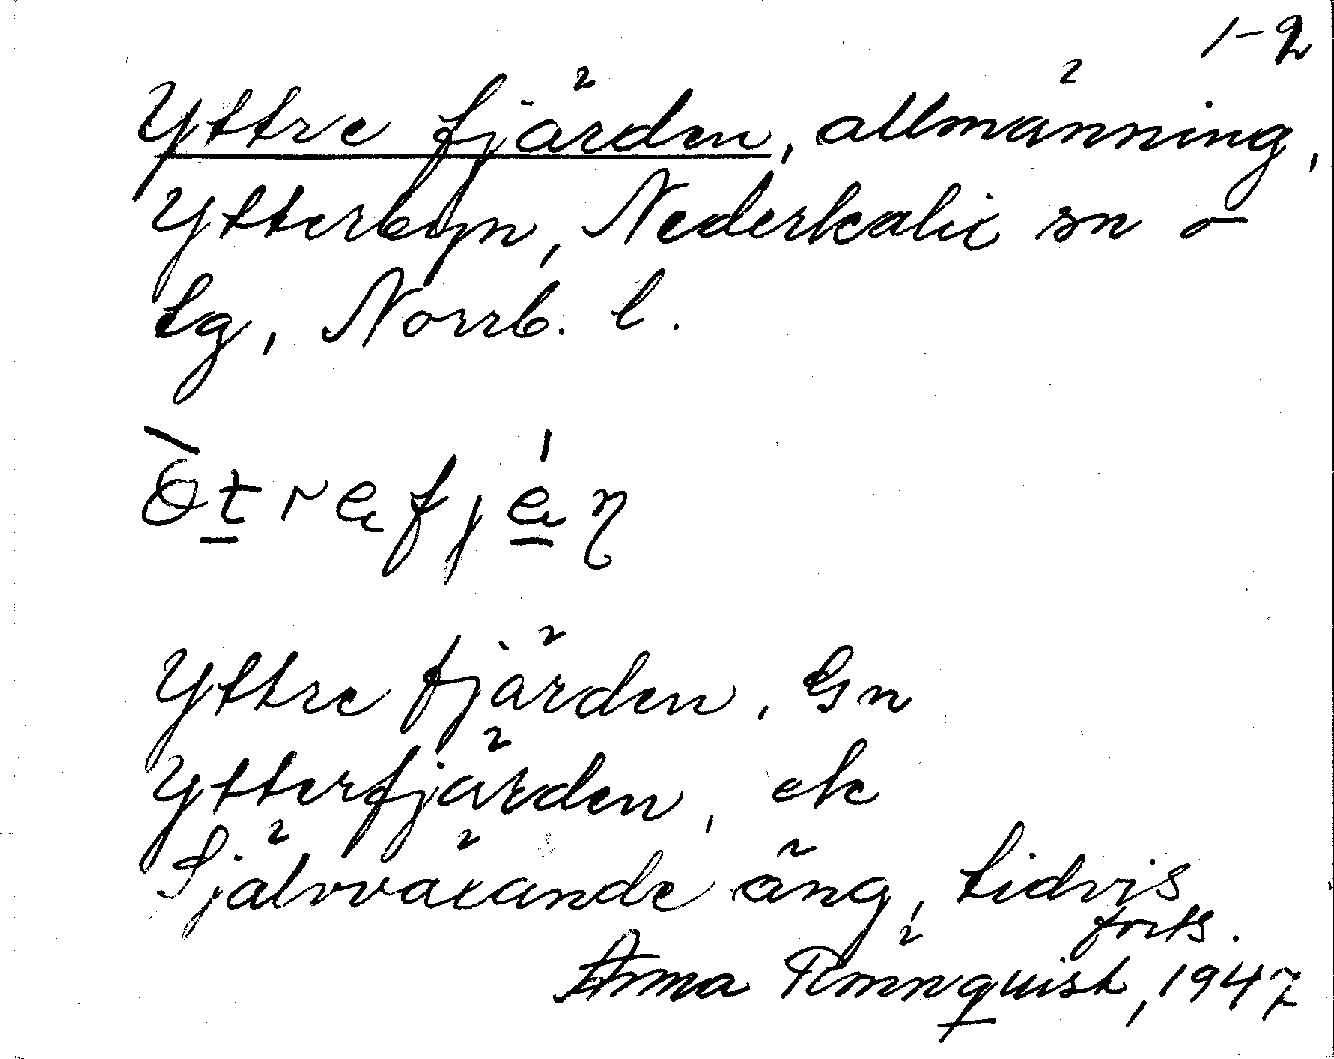 1-2
Yttre fjärden, allmänning,
Ytterbyn, Nederkalix sn o
tg, Norrb. l.
Yttre fjärden, Gn
Ytterfjärden, ek
Självväxande äng, tidvis
forts.
Anna Rönnquist, 1947